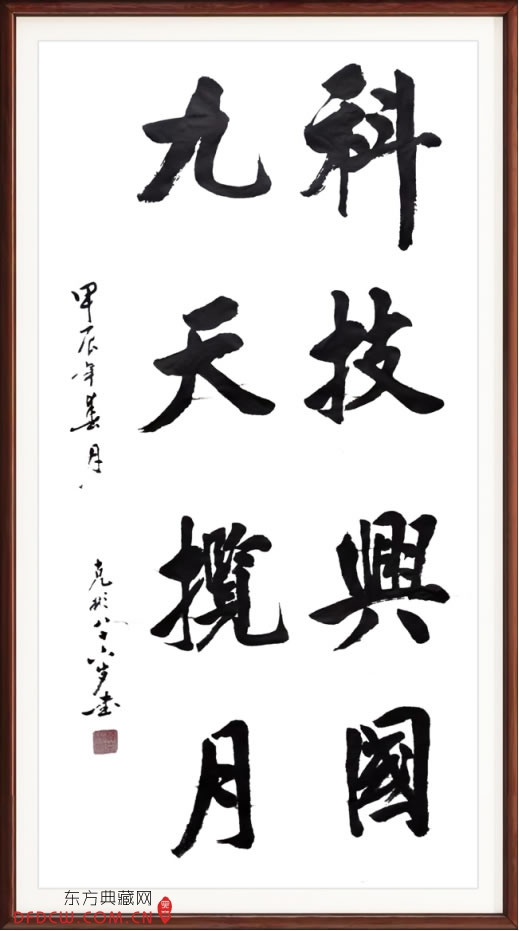 科技興國
九天攬月
甲辰年春月
克彬八十六岁书
东方典藏网
DFDCW.COM.CN